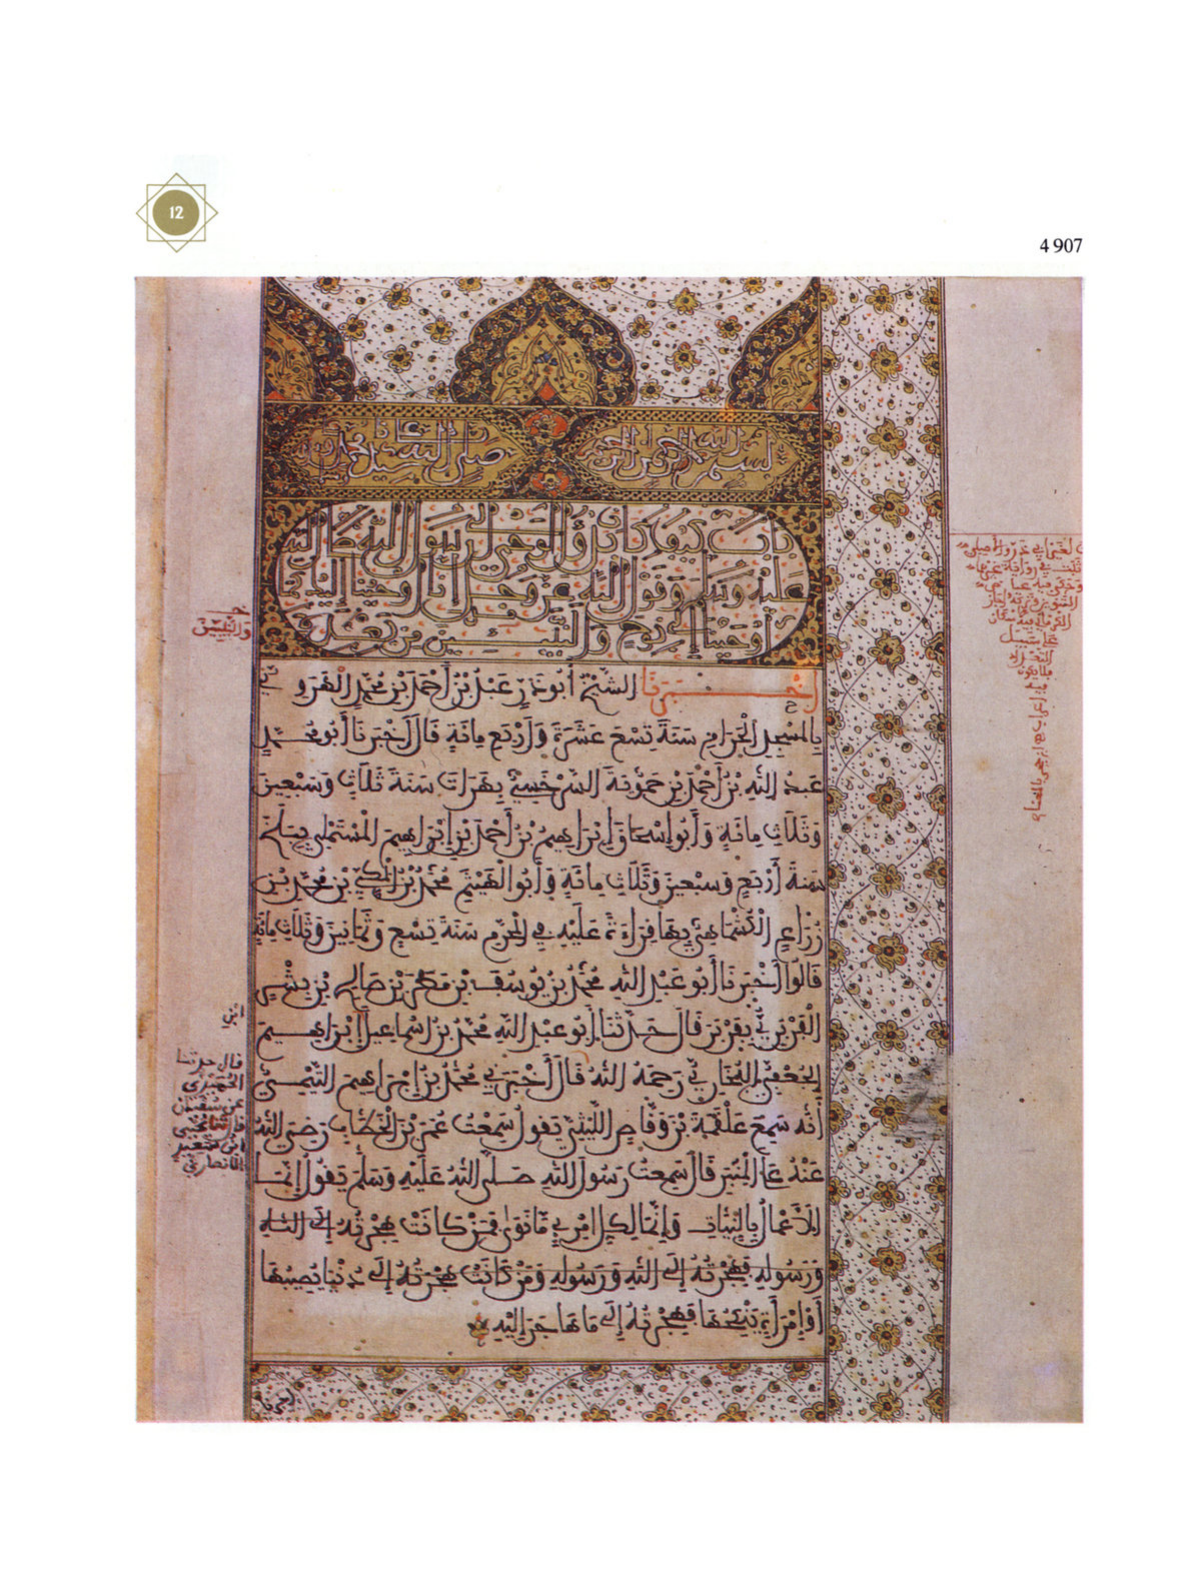 12
4 907
بسم الله الرحمن الرحيم
صلى الله على سيدنا محمد
باب كيف كان بدؤ الوحي إلى رسول الله صلى الله
عليه وسلم وقول الله عز وجل إنا أوحينا إليك كما
أوحينا إلى نوح والنبيين من بعده
والنبيين
أخبرنا الشيخ أبو ذر عبد بن أحمد بن محمد الهروي
بالمسجد الحرام سنة تسع عشرة وأربع مائة قال أخبرنا أبو محمد
عبد الله بن أحمد بن حموية السرخسي بهرات سنة ثلاث وسبعين
وثلاث مائة وأبو إسحاق إبراهيم بن أحمد بن إبراهيم المستملي ببلخ
سنة أربع وسبعين وثلاث مائة وأبو الهيثم محمد بن المكي بن محمد بن
زراع الكشماهني بها قراءة عليه في المحرم سنة تسع وثمانين وثلاث مائة
قالوا أخبرنا أبو عبد الله محمد بن يوسف بن مطر بن صالح بن بشر
الفربري بفربر قال حدثنا أبو عبد الله محمد بن إسماعيل إبراهيم
ابن
الجعفي البخاري رحمه الله قال أخبرني محمد بن إبراهيم التيمي
قال حدثنا
الحميدي
عن سفيان
قال ثنا يحيى
ابن سعيد
الأنصاري
أنه سمع علقمة بن وقاص الليثي يقول سمعت عمر بن الخطاب رضي الله
عنه على المنبر قال سمعت رسول الله صلى الله عليه وسلم يقول إنما
الأعمال بالنيات وإنما لكل امرئ ما نوى فمن كانت هجرته إلى الله
ورسوله فهجرته إلى الله ورسوله ومن كانت هجرته إلى دنيا يصيبها
أو إمرأة ينكحها فهجرته إلى ما هاجر إليه